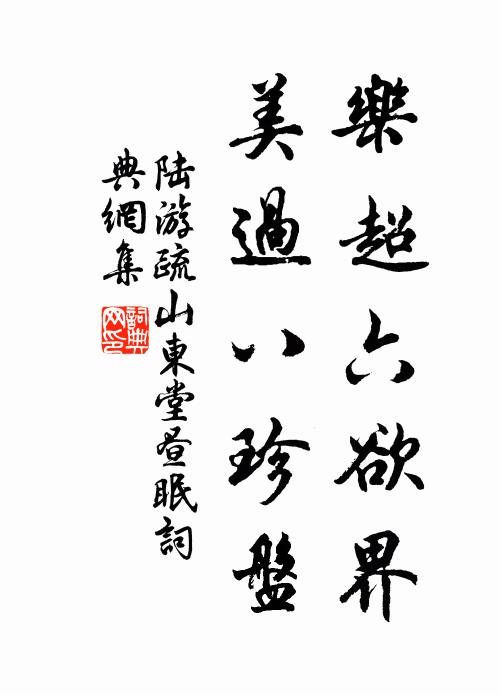 樂超六欲界
美過八珍盤
陸游疏山東堂晝眠詞
典網集
詞典
网印